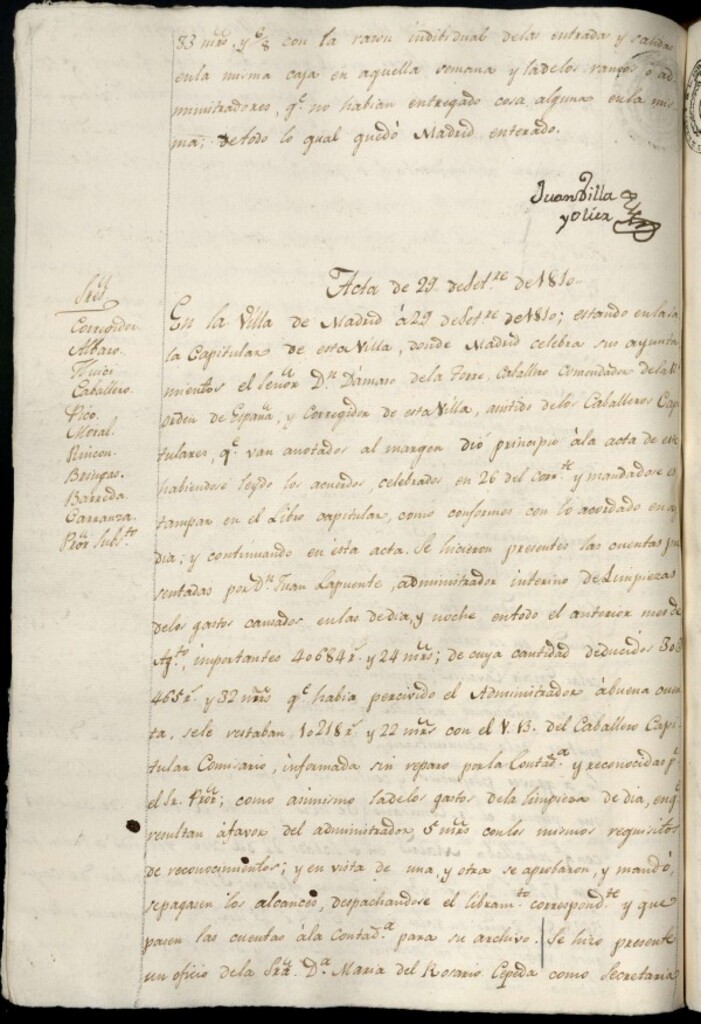 33 mrs, y 6/8 con la razon indibidual delas entrada y salidas
enla misma caja en aquella semana y ladelos ramos ó ad
ministradores, qe no habian entregado cosa alguna enla mis
ma; detodo lo qual quedó Madrid enterado.
Juan Villa
y Olier
Acta de 29 de Setre de 1810
Sres
Corregidor
Albaro.
Caballero.
Pico.
Moral.
Rincon.
Bringas.
Barreda.
Carranza.
Pror Substo
En la Villa de Madrid á 29 de Setre de 1810; estando enla Sa
la Capitular de esta Villa, donde Madrid celebra sus ayunta
mientos el Señor Dn Dámaso de la Torre, Caballero Comendador de la Rl
orden de España, y Corregidor de esta Villa, asistido delos Caballeros Capi
tulares, qe van anotados al margen dió principio ála acta de este
habiendose leydo los acuerdos, celebrados en 26 del corrte y mandadose es
tampar en el Libro capitular, como conformes con lo acordado en aql
dia; y continuando en esta acta. Se hicieron presentes las cuentas pre
sentadas por Dn Juan Lapuente, administrador interino de Limpiezas
delos gastos causados enlas de dia, y noche entodo el anterior mes de
Agto, importantes 40684 rs y 24 mrs; de cuya cantidad deducidos 303
465 rs y 32 mrs qe habia percivido el Administrador ábuena cuen
ta, sele restaban 10218 rs y 22 mrs con el V.B. del Caballero Capi
tular Comisario, informada sin reparo por la Contada y reconocidas pr
el Sr. Pror; como asimismo ladelos gastos dela limpieza de dia, en qe
resultan áfavor del administrador 5 mrs conlos mismos requisitos
de reconocimientos; y en vista de una, y otra se aprobaron, y mandó,
sepagasen los alcances, despachandose el libramto correspondte y que
pasen las cuentas ála Contada para su archivo. Se hizo presente
un oficio dela Sra Da Maria del Rosario Cepeda como Secretaria